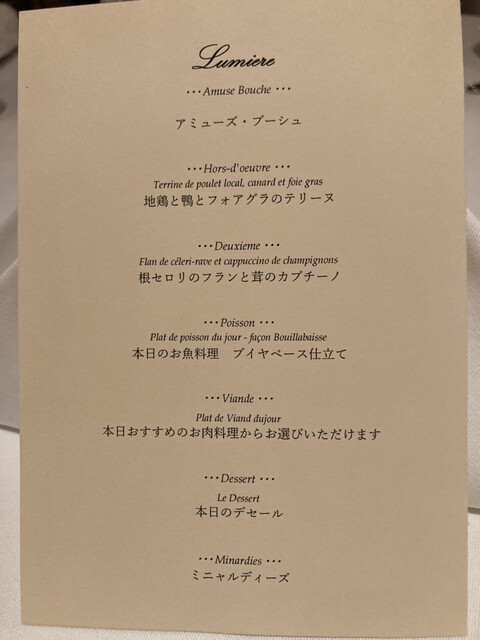 Lumiere
･･･Amuse Bouche ･･･
アミューズ・ブーシュ
･･･Hors-d'oeuvre ･･･
Terrine de poulet local, canard et foie gras
地鶏と鴨とフォアグラのテリーヌ
･･･Deuxieme ･･･
Flan de céleri-rave et cappuccino de champignons
根セロリのフランと茸のカプチーノ
･･･Poisson ･･･
Plat de poisson du jour - façon Bouillabaisse
本日のお魚料理　ブイヤベース仕立て
･･･Viande ･･･
Plat de Viand dujour
本日おすすめのお肉料理からお選びいただけます
･･･Dessert ･･･
Le Dessert
本日のデセール
･･･Minardies ･･･
ミニャルディーズ